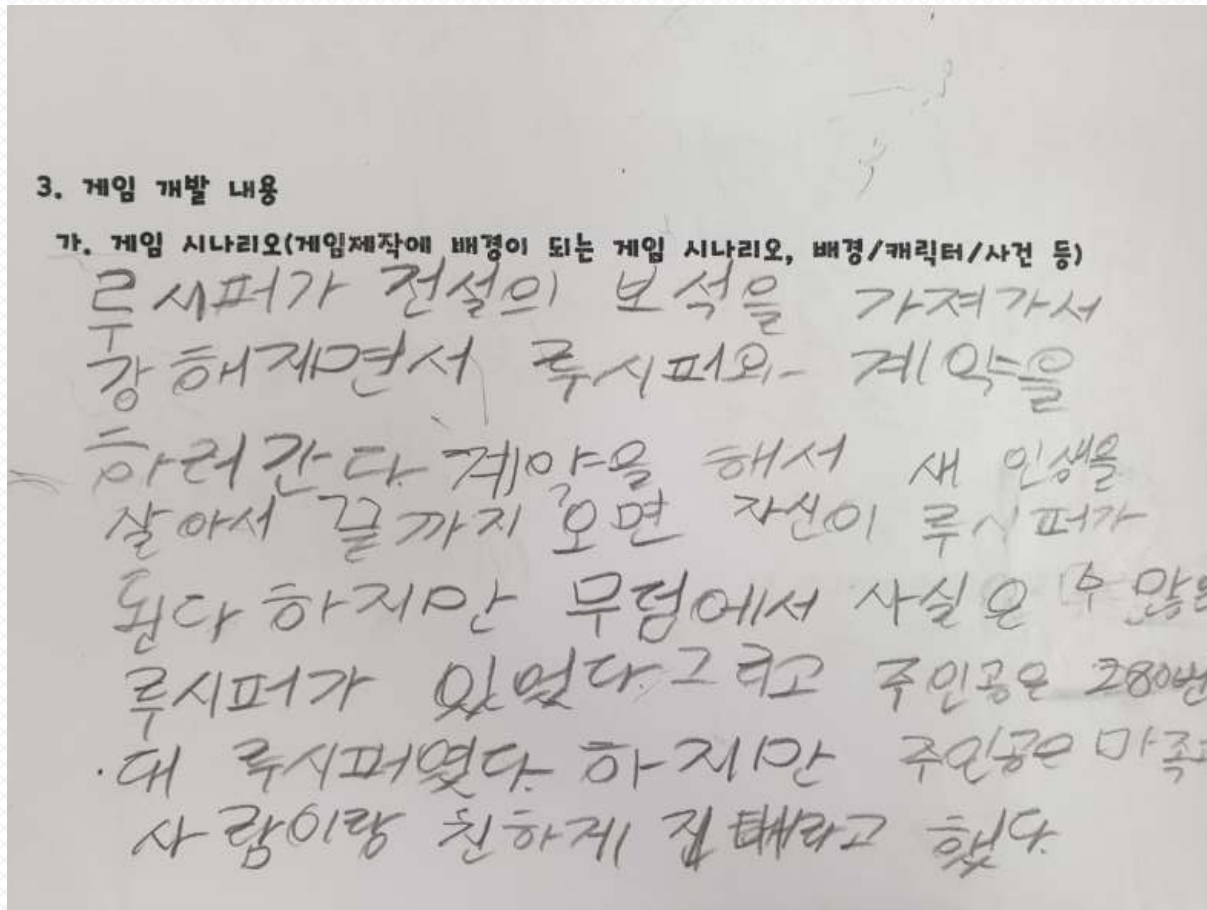 3. 게임 개발 내용
가. 게임 시나리오(게임제작에 배경이 되는 게임 시나리오, 배경/캐릭터/사건 등)
루시퍼가 전설의 보석을 가져가서
강해지면서 루시퍼와 계약을
하러간다. 계약을 해서 새 인생을
살아서 끝까지 오면 자신이 루시퍼가
된다 하지만 무덤에서 사실은 수 많은
루시퍼가 있었다. 그리고 주인공은 280번
대 루시퍼였다. 하지만 주인공은 마족과
사람이랑 친하게 라고 했다.